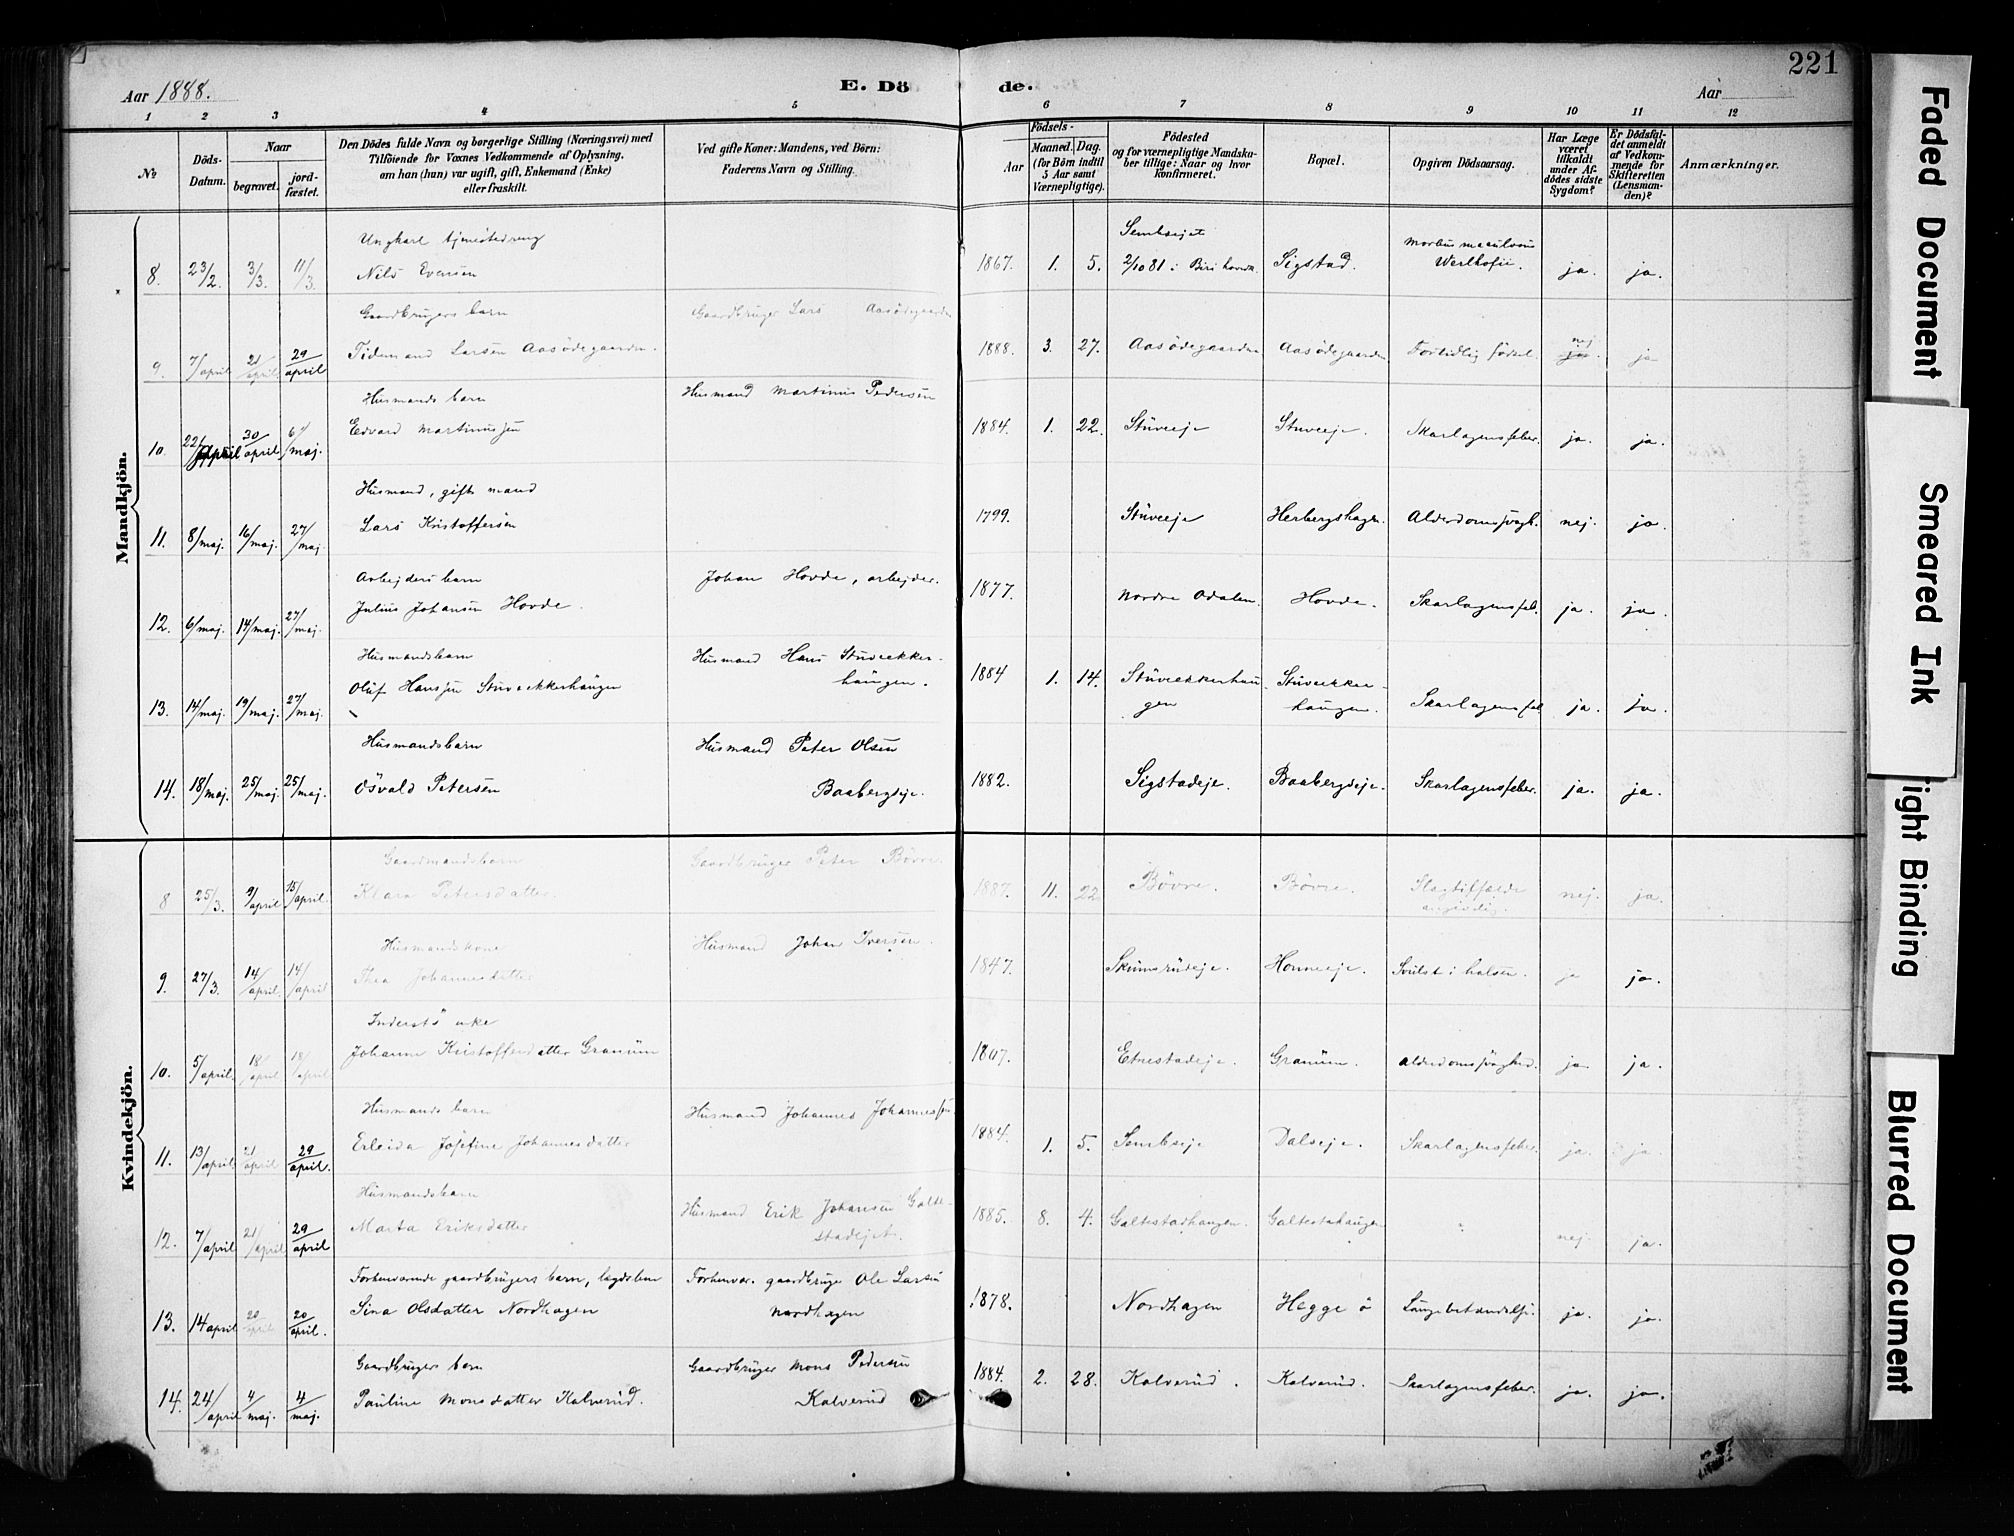 221
Aar 1888.
E. Döde.
Aar
1 2 3 4 5 6 7 8 9 10 11 12
№
Döds-Datum.
Naar
begravet.
jord-fæstet.
Den Dödes fulde Navn og borgerlige Stilling (Næringsvei) med
Tilföiende for Voxnes Vedkommende af Oplysning,
om han (hun) var ugift, gift, Enkemand (Enke)
eller fraskilt.
Ved gifte Koner: Mandens, ved Börn:
Faderens Navn og Stilling.
Födsels-
Aar
Maaned. Dag.
(for Börn indtil
5 Aar samt
Værnepligtige).
Födested
og for værnepligtige Mandska-
ber tillige: Naar og hvor
konfirmeret.
Bopæl.
Opgiven Dödsaarsag.
Har Læge
været
tilkaldt
under Af-
dödes sidste
Sygdom?
Er Dödsfal-
det anmeldt
af Vedkom-
mende for
Skifteretten
(Lensman-
den)?
Anmærkninger.
Mandkjön.
Ungkarl tjenestedreng Sembsejet Morbus maculosus
8. 23/2. 3/3. 11/3. Nils Evensen 1867. 1. 5. 2/10 81 i Biri hovedk. Sigstad. Werlhofii. ja. ja.
Gaardbrugers barn Gaardbruger Lars Aasödegaarden
9. 7/april 21/april 29/april Tidemand Larsen Aasödegaarden. 1888. 3. 27. Aasödegaarden Aasödegaarden Fortidlig födsel. nej ja
Husmands barn Husmand Martinus Pedersen
10. 22/april 30/april 6/maj. Edvard Martinussen 1884. 1. 22. Stuveeje Stuveeje. Skarlagensfeber. ja. ja.
Husmand, gift mand
11. 8/maj. 16/maj. 27/maj. Lars Kristoffersen 1799. Stuveeje Herbergshagen. Alderdomssvagh. nej. ja.
Arbejders barn Johan Hovde, arbejder.
12. 6/maj. 14/maj. 27/maj. Julius Johansen Hovde. 1877. Nordre Odalen. Hovde. Skarlagensfeb. ja. ja.
Husmandsbarn Husmand Hans Stuveekker-
haugen.
13. 14/maj. 19/maj. 27/maj. Oluf Hanssen Stuveekkerhaugen 1884 1. 14. Stuveekkerhau-
gen Stuveekker-
haugen. Skarlagensfeb. ja. ja.
Husmandsbarn Husmand Peter Olsen
14. 18/maj. 25/maj. 25/maj. Osvald Petersen Baabergseje. 1882. Sigstadeje. Baabergseje. Skarlagensfeber. ja. ja.
Kvindekjön.
Gaardmandsbarn Gaardbruger Peter Bövre.
8 25/3. 9/april 15/april. Klara Petersdatter. 1887. 11. 22 Bövre. Bövre. Slagtilfælde
angivelig. nej. ja.
Husmandskone Husmand Johan Iversen.
9. 27/3. 14/april. 14/april Thea Johannesdatter 1847. Skumsrudeje. Honneeje. Svulst i halsen. ja ja.
Inderstenke
10. 5/april. 18/april 18/april Johanne Kristoffersdatter Granum 1807. Etnestadeje. Granum. Alderdomssvaghed. ja ja.
Husmands barn Husmand Johannes Johannessen
11. 13/april 21/april 29/april. Josefine Johannesdatter 1884. 1. 5. Sembseje Dalseje. Skarlagensfeber. ja. ja.
Husmandsbarn Husmand Erik Johansen Galte-
stadejet.
12. 7/april 21/april 29/april Marta Eriksdatter 1885. 8. 4. Galtestadhaugen. Galtestahaugen " nej. ja.
Forhenværende gaardbrugers barn, lægdslem Forhenvær. gaardbruger Ole Larsen
13. 14 april 20/april 20/april. Sina Olsdatter Nordhagen Nordhagen 1878. Nordhagen Hegge ö Lungebetændelse. ja. ja.
Gaardbrugers barn Gaardbruger Mons Pedersen
14. 24/april 4/maj. 4/maj. Pauline Monsdatter Kalverud. Kalverud 1884. 2. 28. Kalverud. Kalverud. Skarlagensfeber. ja. ja.
Faded Document
Smeared Ink
ight Binding
Blurred Document